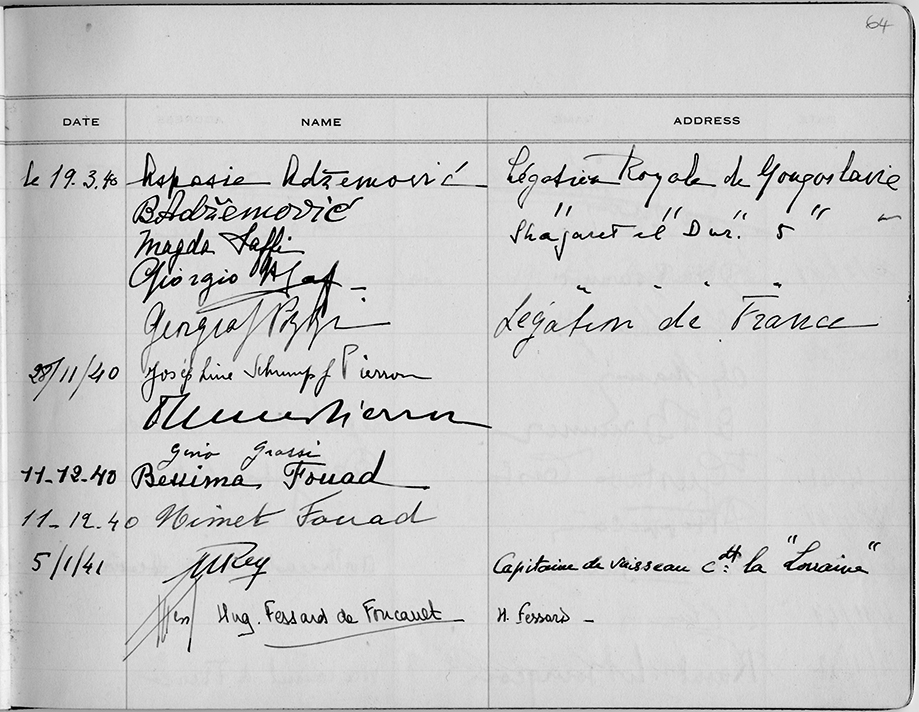 64
DATE NAME ADDRESS
le 19.3.40 Aspasie Adžemović Légation Royale de Yougoslavie
B. Adžemović " " " "
Magda Saffi Shagaret il Dur. 5
Giorgio " " "
Légation de France
28/11/40 Joséphine Schrumpf Pierron
Pierron
Gino Grassi
11-12-40 Bessima Fouad
11-12-40 Nimet Fouad
5/1/41 Rey Capitaine de vaisseau Cdt la "Lorraine"
Hug. Fessard de Foucault H. Fessard -